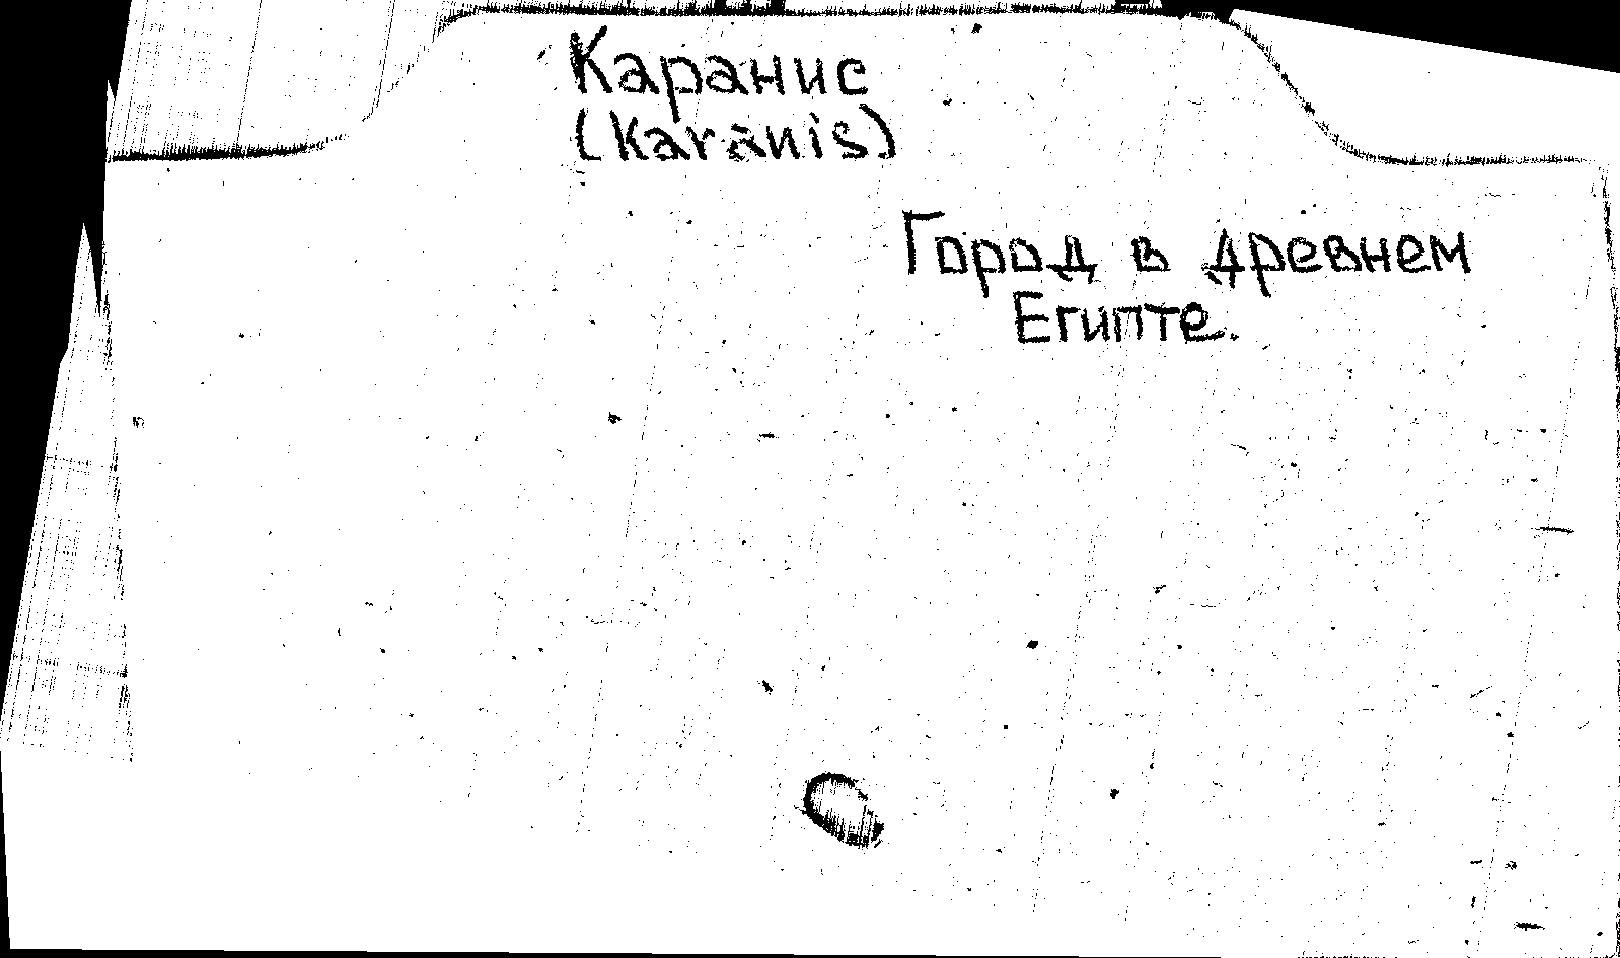 Каранис
(Karanis)
Город в древнем
Египте.